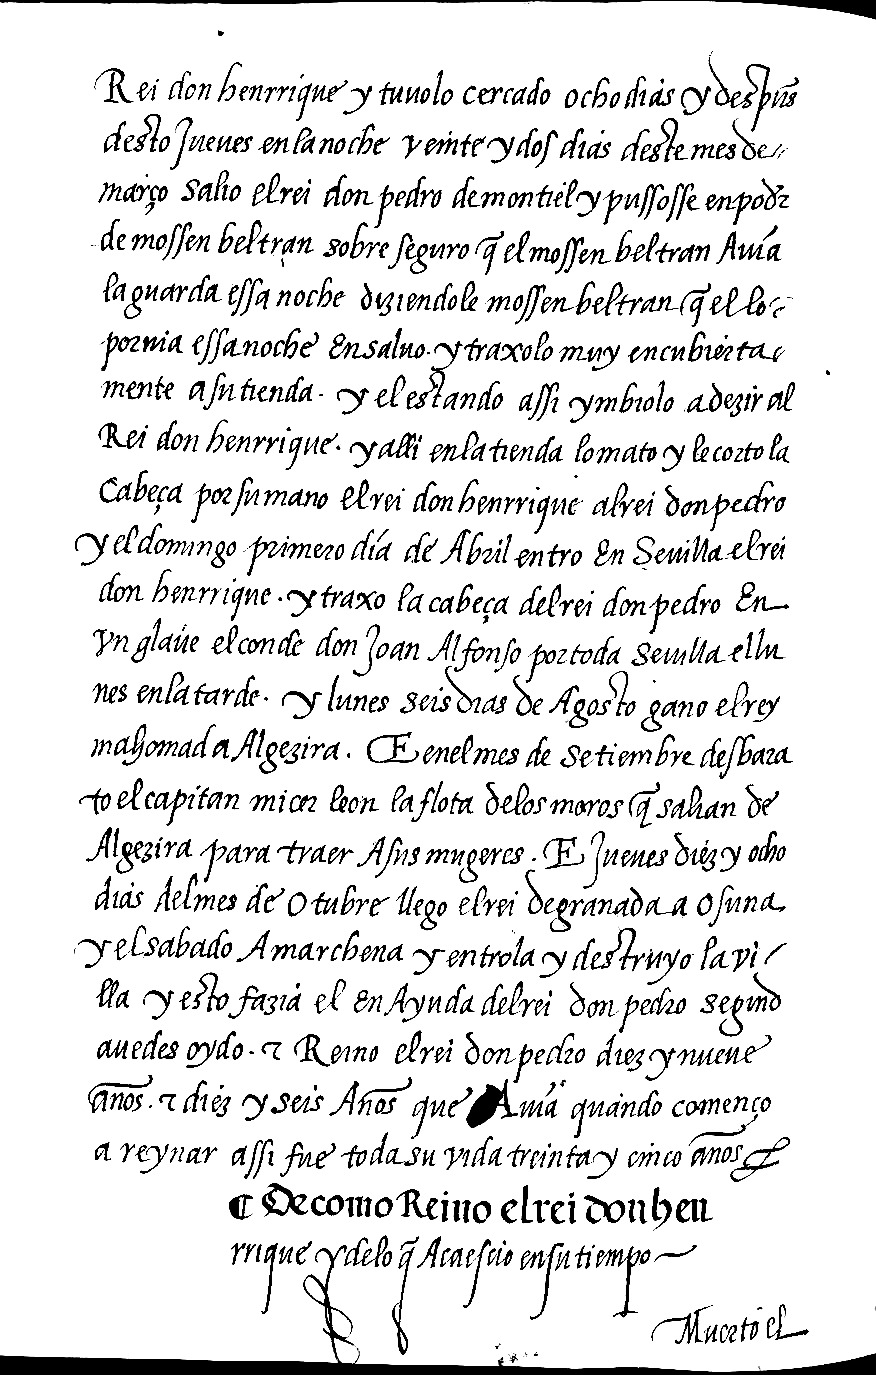 Rei don henrrique y tuuolo cercado ocho dias y despũs
desto Jueues en la noche veinte y dos dias deste mes de
março salio el rei don pedro de montiel y pussosse en podr
de mossen beltran sobre seguro q̃ el mossen beltran Auia
la guarda essa noche diziendole mossen beltran q̃ el lo
pornia essa noche En saluo. y traxolo muy encubierta
mente a su tienda. y el estando assi ymbiolo a dezir al
Rei don henrrique. y alli en la tienda lo mato y le corto la
Cabeça por su mano el rei don henrrique al rei don pedro
y el domingo primero día de Abril entro En Seuilla el rei
don henrrique. y traxo la cabeça del rei don pedro En
vn glaue el conde don Joan Alfonso por toda Seuilla el lu
nes en la tarde. y lunes seis dias de Agosto gano el rey
mahomad a Algezira. E en el mes de setiembre desbara
to el capitan micer leon la flota de los moros q̃ salian de
Algezira para traer A sus mugeres. E Jueues diez y ocho
dias del mes de Otubre llego el rei de granada a Osuna
y el sabado A marchena y entrola y destruyo la vi
lla y esto fazia el en Ayuda del rei don pedro segund
auedes oydo. ⁊ Reino el rei don pedro diez y nueue
años. ⁊ diez y seis Años que Auia quando començo
a reynar assi fue toda su vida treinta y cinco años
¶ De como Reino el rei don hen
rrique y de lo q̃ Acaescio en su tiempo
Muerto el